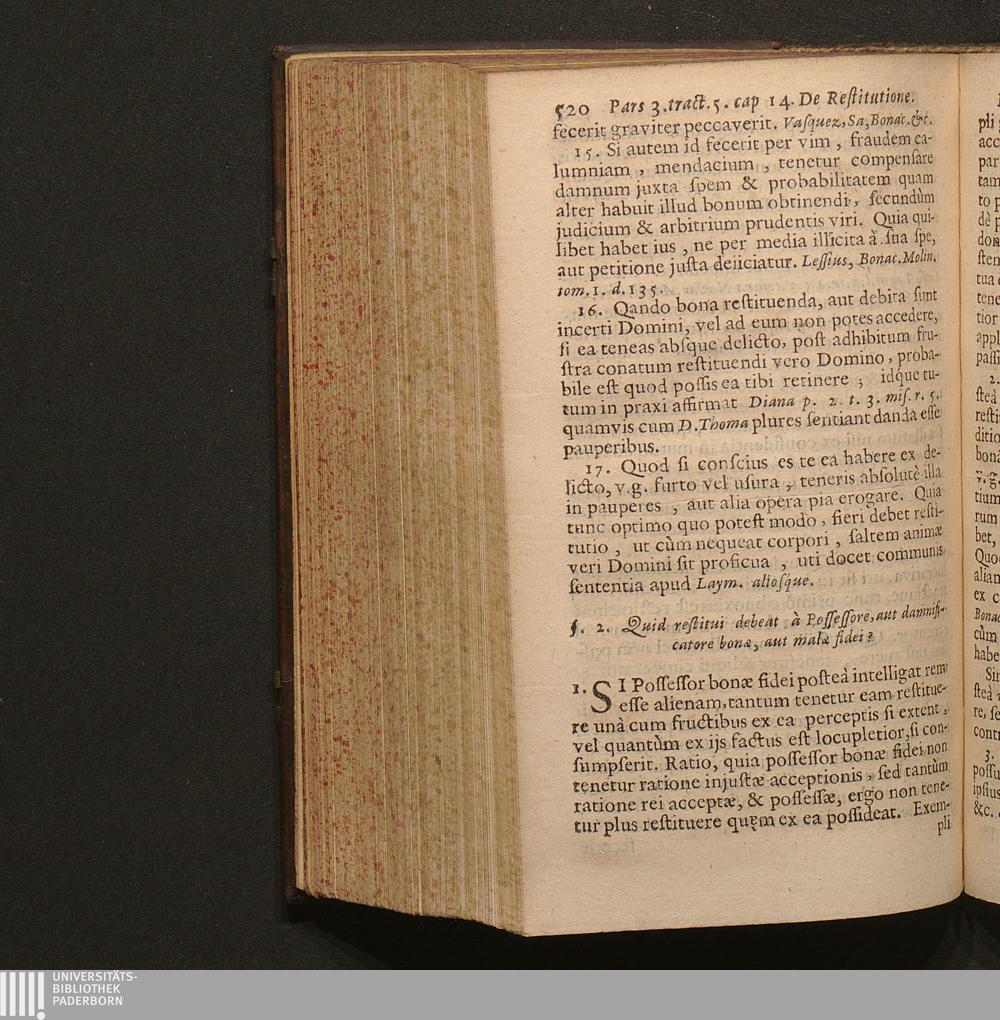 520 Pars 3. tract. 5. cap 14. De Reſtitutione.
fecerit graviter peccaverit. Vaſquez, Sa, Bonac. &c.
15. Si autem id fecerit per vim, fraudem ca-
lumniam, mendacium, tenetur compenſare
damnum juxta ſpem & probabilitatem quam
alter habuit illud bonum obtinendi, ſecundùm
judicium & arbitrium prudentis viri. Quia qui-
libet habet ius, ne per media illicita à ſua ſpe,
aut petitione juſta deiiciatur. Leſſius, Bonac. Molin.
tom. 1. d. 135.
16. Qando bona reſtituenda, aut debita ſunt
incerti Domini, vel ad eum non potes accedere,
ſi ea teneas abſque delicto, poſt adhibitum fru-
ſtra conatum reſtituendi vero Domino, proba-
bile eſt quod poſſis ea tibi retinere; idque tu-
tum in praxi affirmat Diana p. 2. t. 3. miſ. r. 5.
quamvis cum D. Thoma plures ſentiant danda eſſe
pauperibus.
17. Quod ſi conſcius es te ea habere ex de-
licto, v.g. furto vel uſura, teneris abſolutè illa
in pauperes, aut alia opera pia erogare. Quia
tunc optimo quo poteſt modo, fieri debet reſti-
tutio, ut cùm nequeat corpori, ſaltem animæ
veri Domini ſit proficua, uti docet communis
ſententia apud Laym. alioſque.
§. 2. Quid reſtitui debeat à Poſſeſſore, aut damnifi-
catore bonæ, aut malæ fidei?
1. SI Poſſeſſor bonæ fidei poſteà intelligat rem
eſſe alienam, tantum tenetur eam reſtitue-
re unà cum fructibus ex ea perceptis ſi extent,
vel quantùm ex ijs factus eſt locupletior, ſi con-
ſumpſerit. Ratio, quia poſſeſſor bonæ fidei non
tenetur ratione injuſtæ acceptionis, ſed tantùm
ratione rei acceptæ, & poſſeſſæ, ergo non tene-
tur plus reſtituere quàm ex ea poſſideat. Exem-
pli
pli
acc
par
tam
to p
dè p
don
ſten
tua
tene
tior
appl
paſſi
2.
ſteà
reſti
ditio
bonâ
v.g.
tium
rum
bet,
Quo
alian
ex c
Bonac
cùm
habe
Sin
ſteà
re, ſe
contr
3.
poſſu
ipſius
&c.
UNIVERSITÄTS-
BIBLIOTHEK
PADERBORN